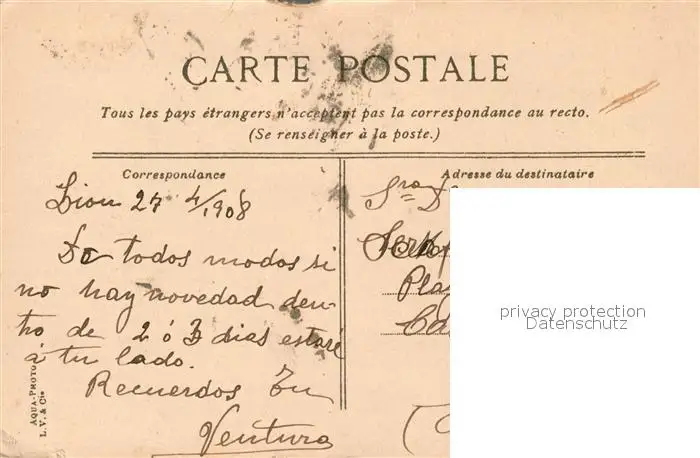 CARTE POSTALE
Tous les pays étrangers n'acceptent pas la correspondance au recto.
(Se renseigner à la poste.)
Correspondance
Lion 27 4/1908
De todos modos si
no hay novedad den-
tro de 2 ó 3 dias estaré
á tu lado.
Recuerdos Tu
Ventura
AQUA-PHOTO
L. V. & Cie
Adresse du destinataire
Sra D
Pla
privacy protection
Datenschutz